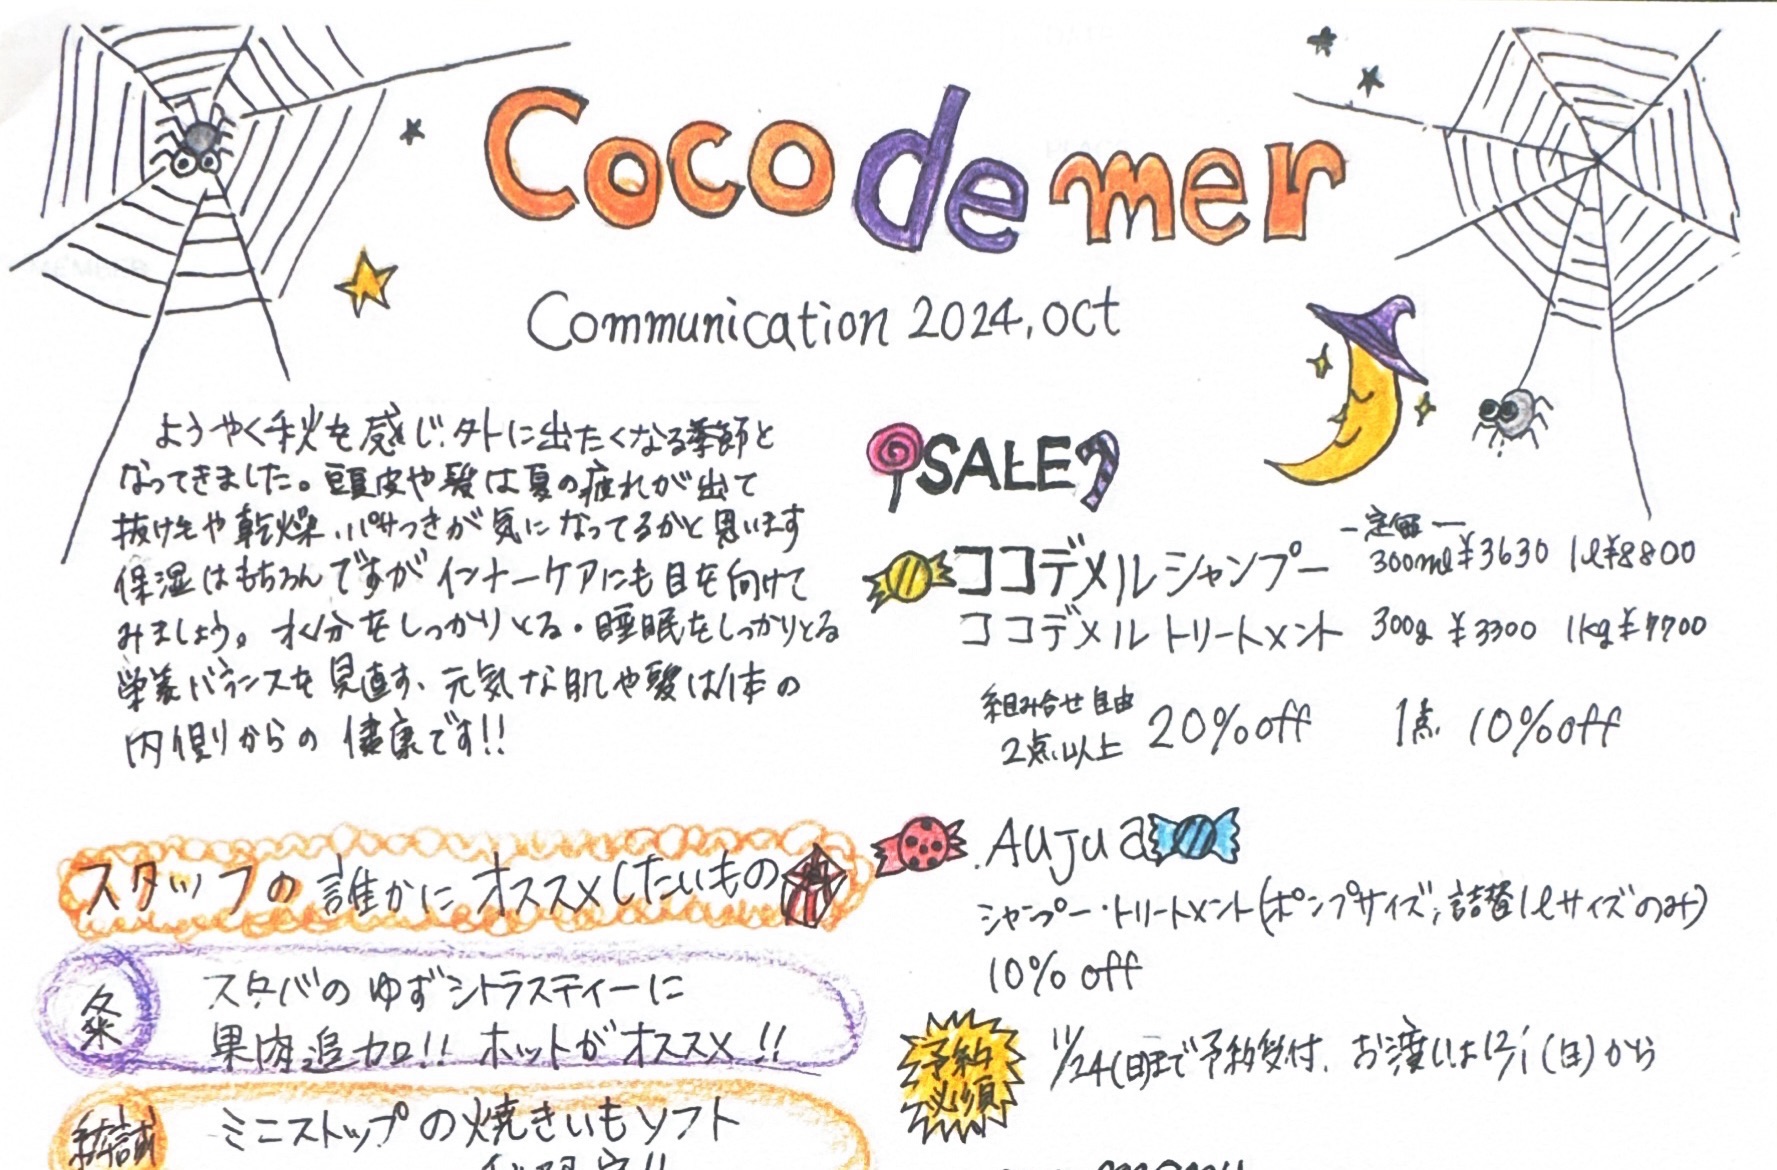 Coco de mer
Communication 2024, oct
ようやく秋を感じ、外に出たくなる季節と
なってきました。頭皮や髪は夏の疲れが出て
抜け毛や乾燥、パサつきが気になってるかと思います
保湿はもちろんですがインナーケアにも目を向けて
みましょう。水分をしっかりとる・睡眠をしっかりとる
栄養バランスを見直す、元気な肌や髪は体の
内側からの健康です!!
スタッフの誰かにオススメしたいもの
粂
スタバのゆずシトラスティーに
果肉追加!! ホットがオススメ!!
ミニストップの焼きいもソフト
SALE
ー定価ー
ココデメルシャンプー 300ml ¥3630 1l ¥8800
ココデメルトリートメント 300g ¥3300 1kg ¥7700
組み合せ自由
2点以上 20%off 1点 10%off
Aujua
シャンプー・トリートメント(ポンプサイズ,詰替1lサイズのみ)
10% off
予約
必須
11/24(日)まで予約受付、お渡しは12/1(日)から